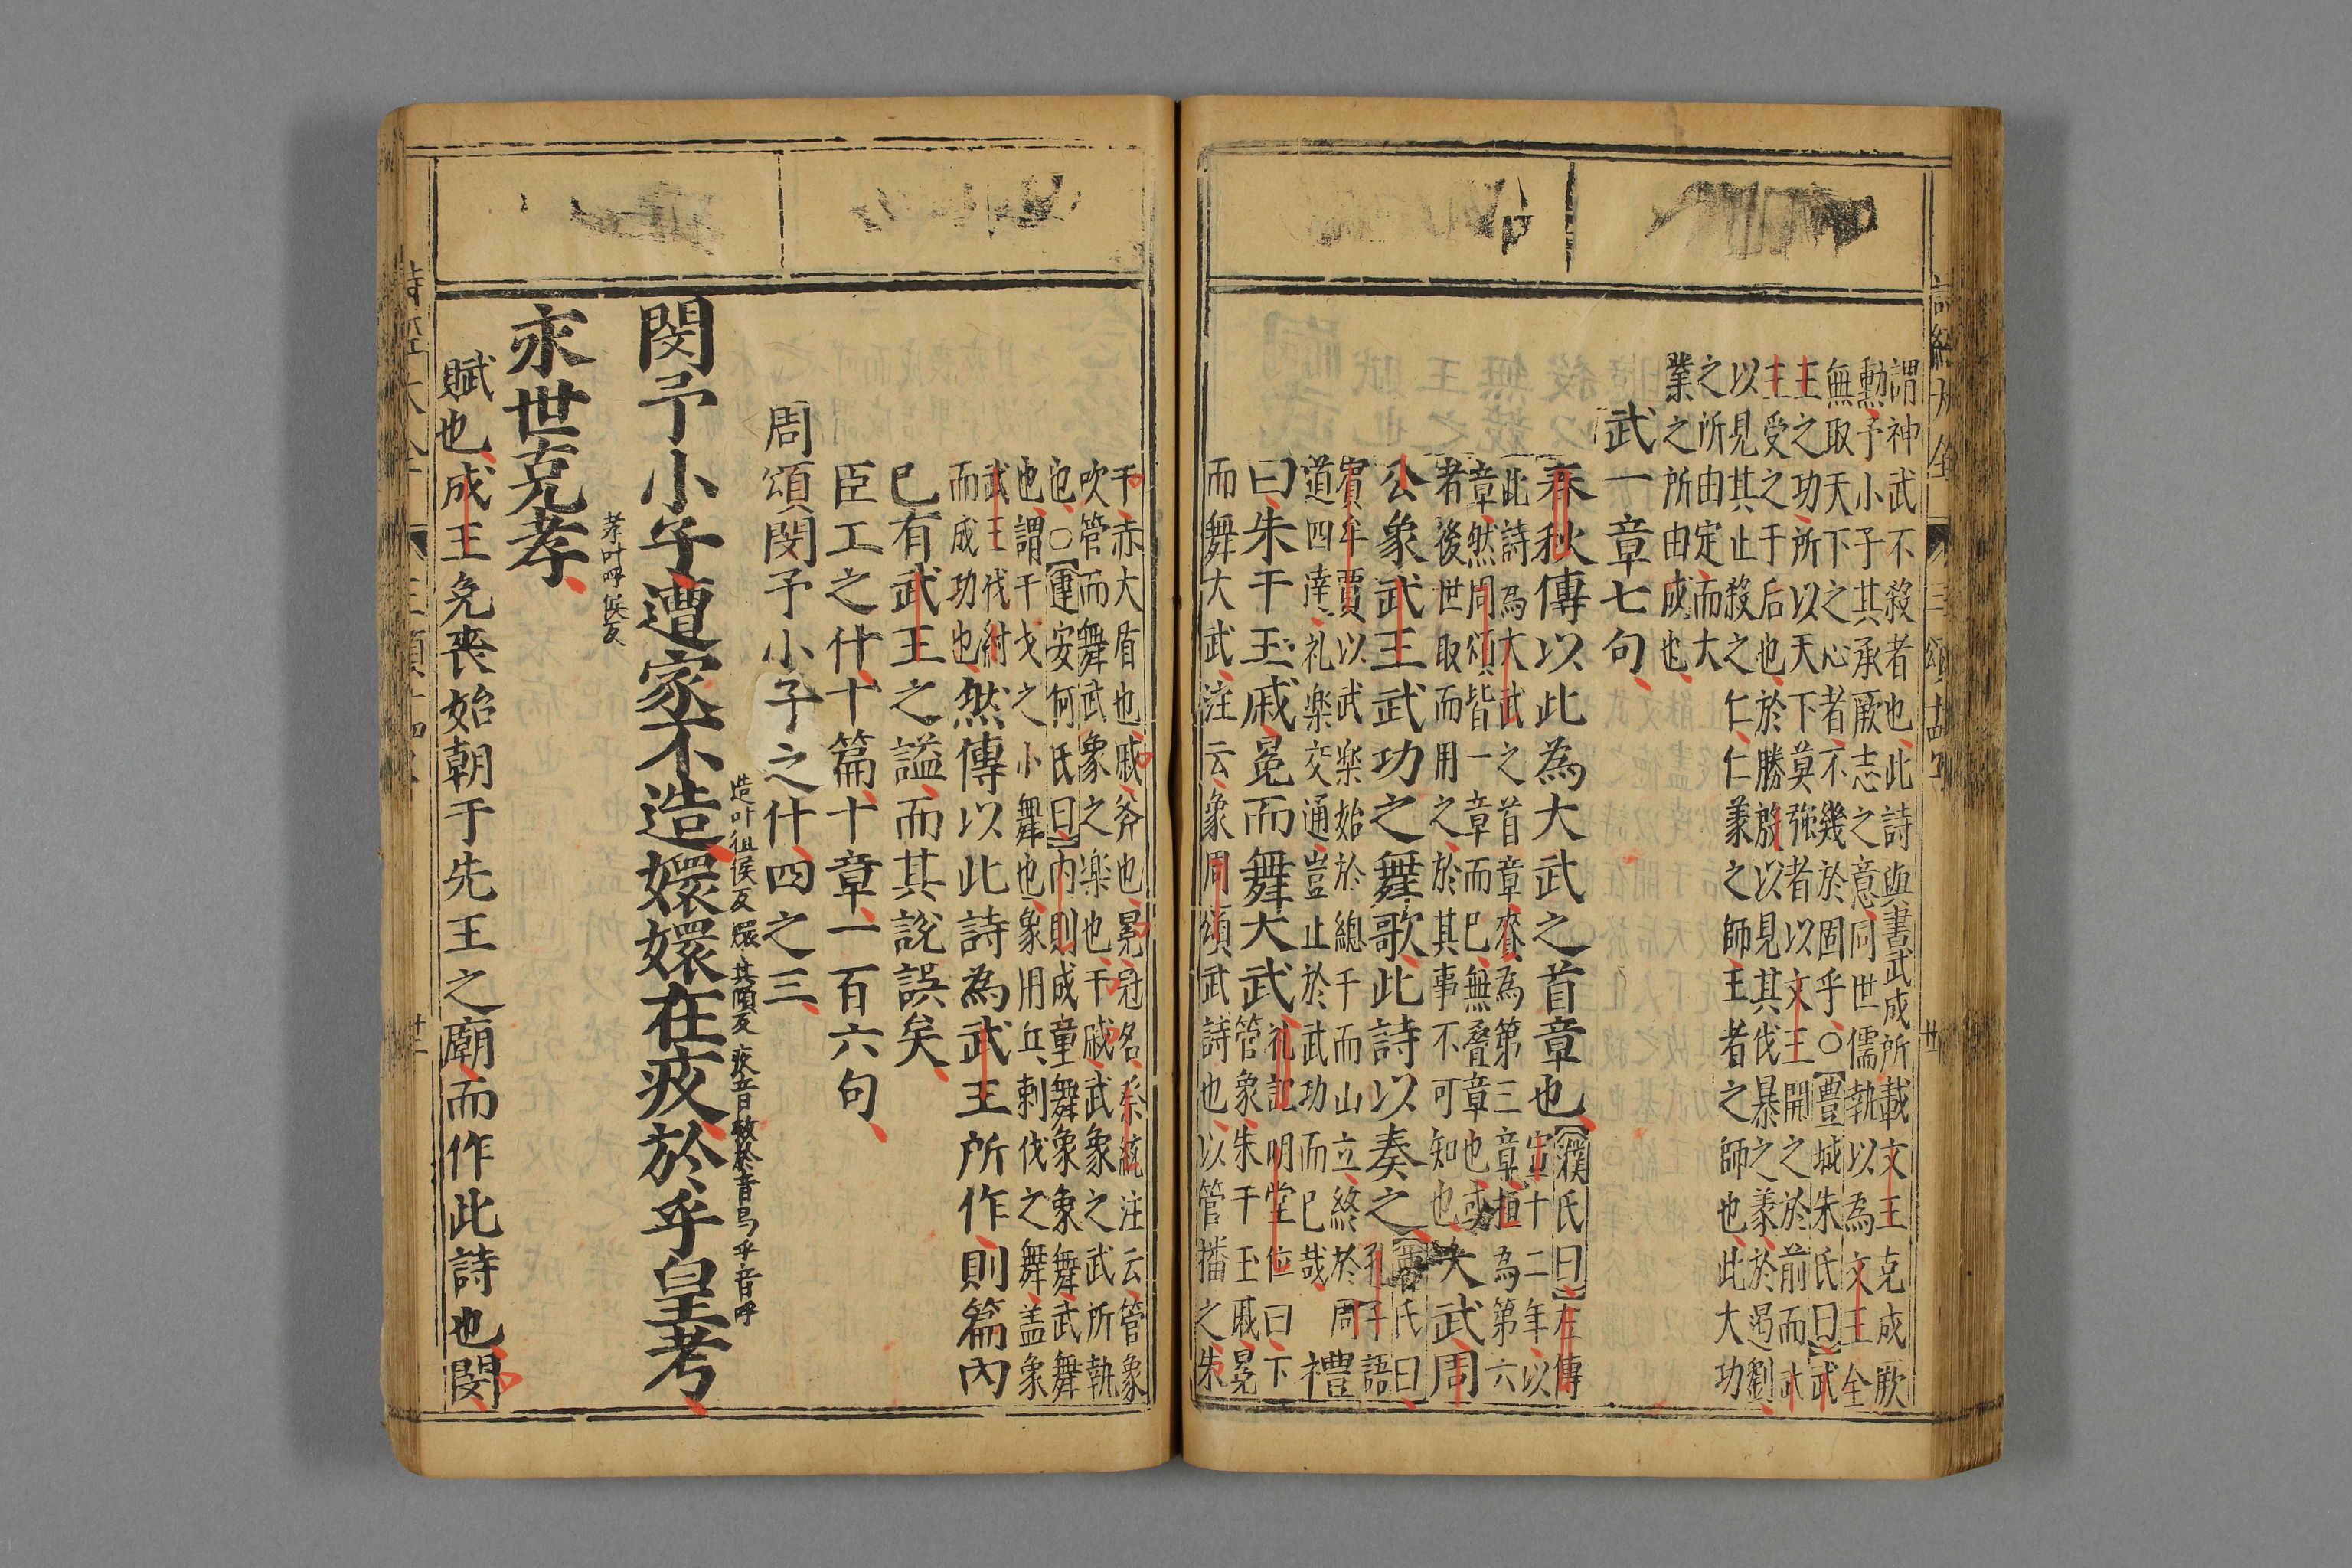 謂神武不殺者也此詩與書武成所載文王克成厥
勲予小子其承厥志之意同世儒執以為文王全
無取天下之心者不幾於固乎○豐城朱氏曰武
王之功所以天下莫强者以文王開之於前而武
王受之于后也於勝殷以見其伐暴之義於遏劉
以見其止殺之仁仁義之師王者之師也此大功
之所由定而大
業之所由成也
武一章七句
春秋傳以此為大武之首章也
濮氏曰左傳
宣十二年以
此詩為大武之首章賚為第三章桓為第六
章然周頌皆一章而已無疊章也或
者後世取而用之於其事不可知也
大武周
公象武王武功之舞歌此詩以奏之
氏曰
孔子語
賓牟賈以武楽始於總干而山立終於周
道四達礼楽交通豈止於武功而已哉
禮
曰朱干玉戚冕而舞大武
礼記明堂位曰下
管象朱干玉戚冕
而舞大武注云象周頌武詩也以管播之朱
干赤大盾也戚斧也冕冠名系統注云管象
吹管而舞武象之楽也干戚武象之武所執
也○運安何氏曰内則成童舞象象舞武舞
也謂干戈之小舞也象用兵刺伐之舞盖象
武王伐紂
而成功也
然傳以此詩為武王所作則篇內
已有武王之謚而其說誤矣
臣工之什十篇十章一百六句
周頌閔予小子之什四之三
閔予小子遭家不造嬛嬛在疚於乎皇考
造叶徂侯反 嬛其傾反 疚音救於音烏乎音呼
永世克孝
孝叶呼侯反
賦也成王免喪始朝于先王之廟而作此詩也閔